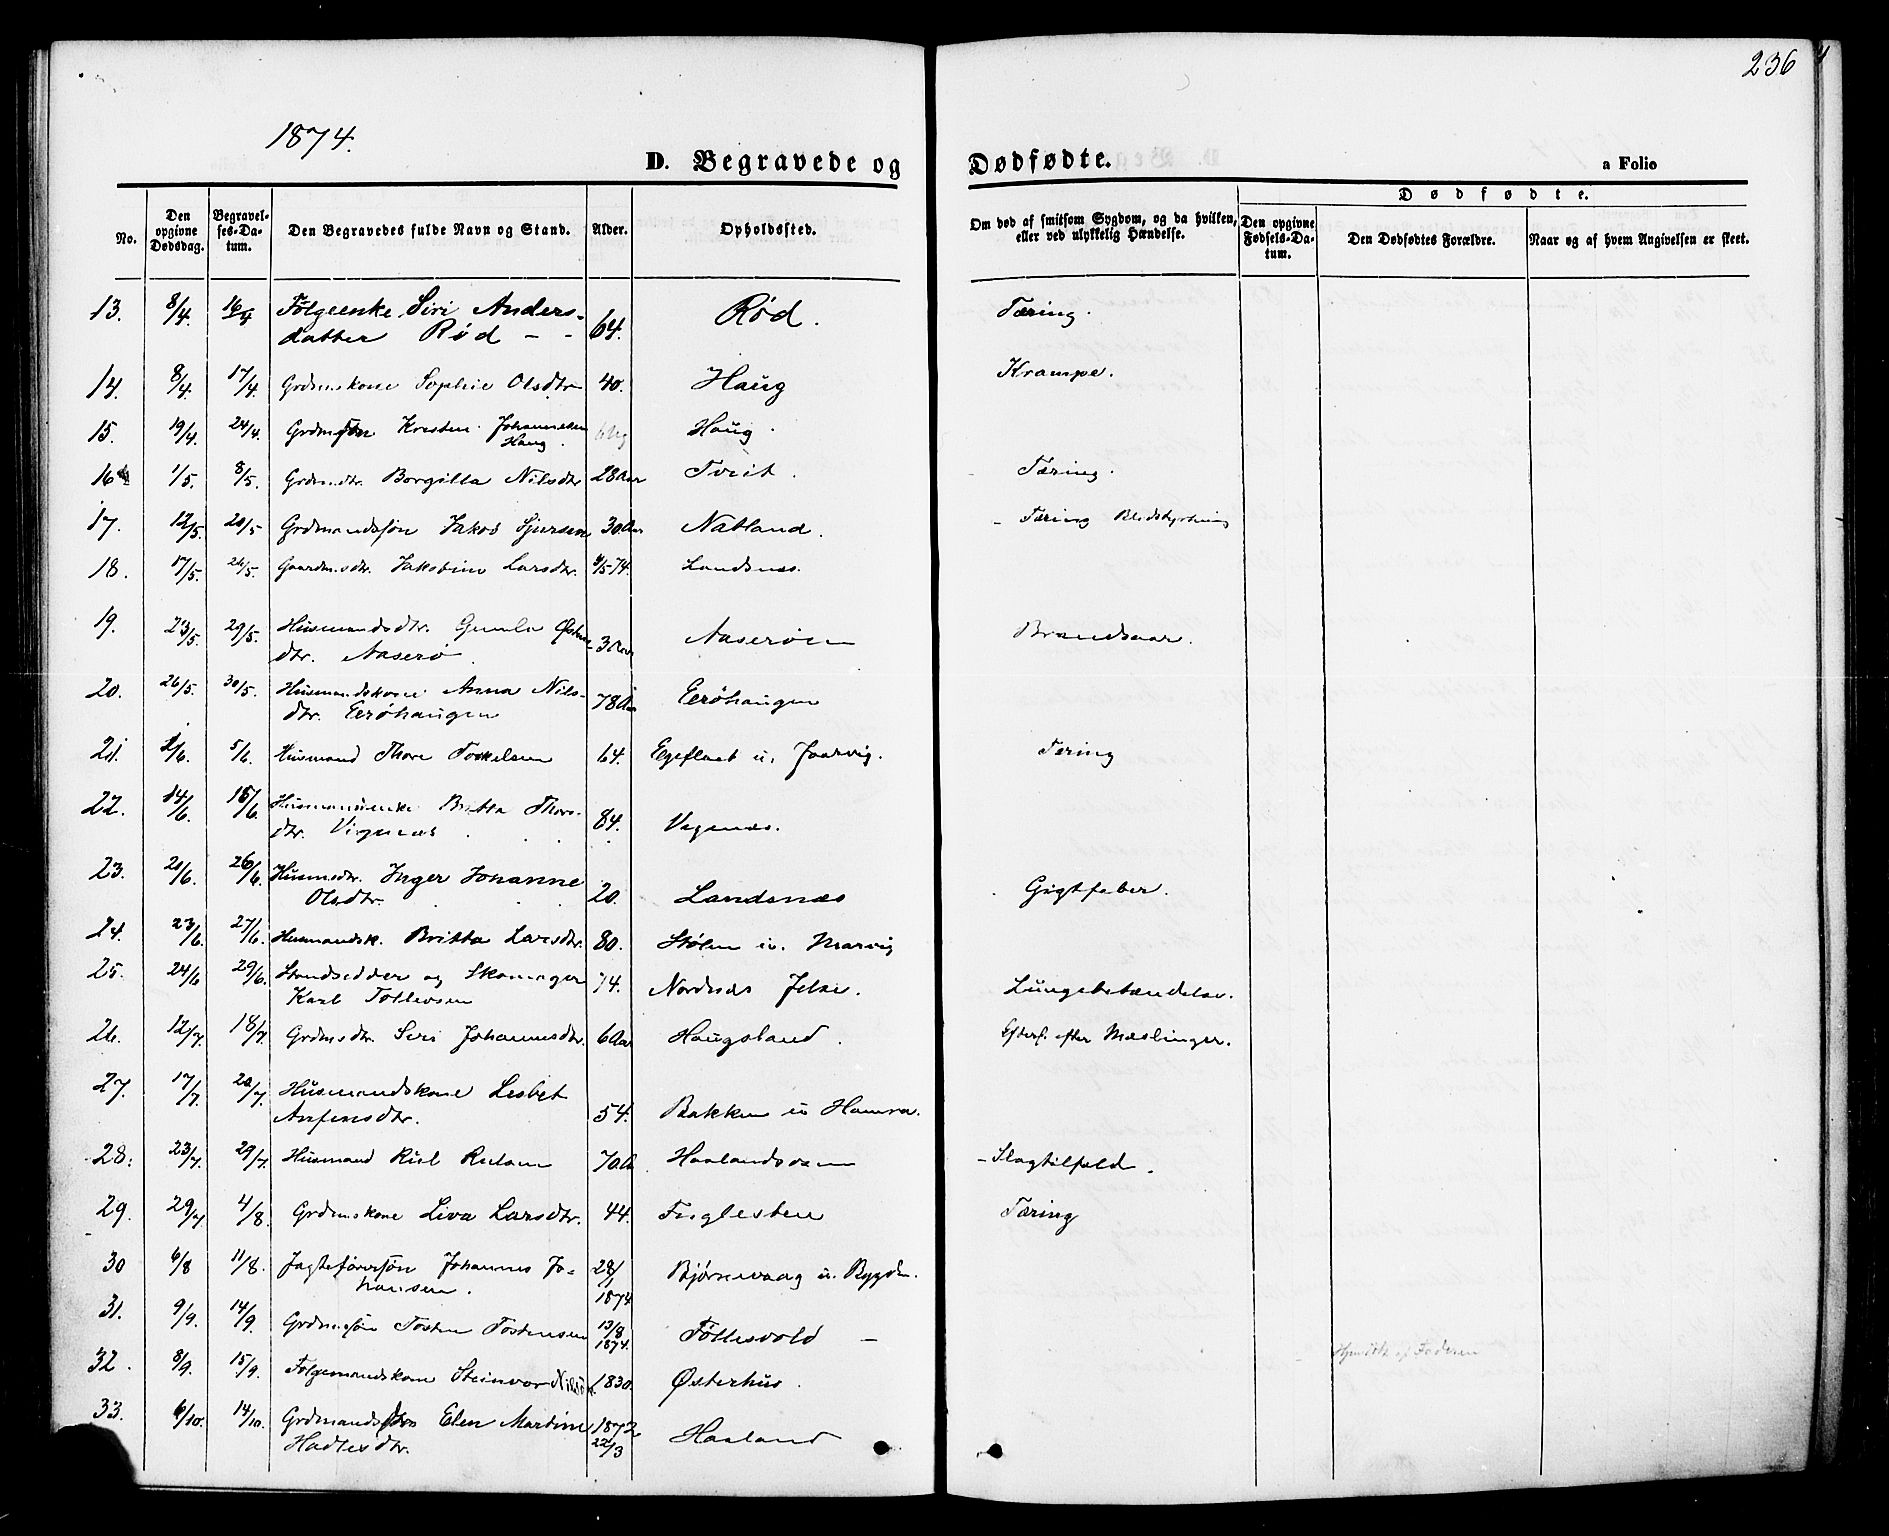 236
1874.
D. Begravede og Dødfødte.
a Folio
No.
Den opgivne Dødsdag.
Begravelses-Datum.
Den Begravedes fulde Navn og Stand.
Alder.
Opholdssted.
Om død af smitsom Sygdom, og da hvilken, eller ved ulykkelig Hændelse.
Dødfødte.
Den opgivne Fødsels-Datum.
Den Dødfødtes Forældre.
Naar og af hvem Angivelsen er skeet.
13. 8/4. 16/4 Følgeenke Siri Anders-
datter Rød - - 64. Rød. Tæring.
14. 8/4. 17/4. Grdmskone Sophie Olsdtr 40. Haug Krampe.
15. 19/4. 24/4. Grdmsøn Kresten Johannesen
Haug. Haug.
16 1/5. 8/5. Grdmdtr. Borgilla Nilsdtr 28 Aar Tveit. Tæring.
17. 12/5. 20/5 Grdmandssøn Jakob Sjursen 30 Aar Natland. - Tæring Blodstyrtning
18. 17/5. 26/5. Gaardmsdtr. Jakobine Larsdtr. 4/5 74. Landsnæs.
19. 23/5. 29/5. Husmandsdtr. Gunla
dtr. Aaserø. 3 Aar Aaserøen Brandsaar.
20. 26/5. 30/5. Husmandskone Anna Nils-
dtr. Eerøhaugen 78 Aar Eerøhaugen
21. 2/6. 5/6. Husmand Thore Toskelsen 64. Egeflaat u. Jaarvig. Tæring
22. 14/6. /6. Husmandsenke Britta Thors-
dtr. Vignæs 84. Vegenæs.
23. 20/6. 26/6. Husmsdtr. Inger Johanne
Olsdtr. 20. Landsnæs Gigtfeber.
24. 23/6. 27/6. Husmandsk. Britta Larsdtr. 80. Stølen u. Marvig
25. 24/6 29/6. Strandsidder og Skomager
Karl Tollevsen 74. Nordnæs Jelse. Lungebetændelse.
26. 12/7. 18/7. Grdmsdtr. Seri Johannesdtr. 6 Aar Haugsland. Efterf. efter Mæslinger.
27. 17/7. 20/7. Husmandskone Lesbet
Anfensdtr. 54. Bakken u Hamra.
28. 23/7. 29/7. Husmand 70 A. - Slagtilfæld.
29. 29/7. 4/8. Grdmskone Liva Larsdtr. 44. Fuglesten Tæring
30 6/8 11/8. Jagteførersøn Johannes Jo-
hansen. 28/1 1874 Bjørnevaag u. Bygden.
31. 9/9. 14/9 Grdmsøn Tosten Tostensen 13/8 1874. Tøttesvold -
32. 8/9. 15/9. Følgemandskone Steinvor Nilsdtr. 1830. Østerhus. af Faderen
33. 6/10. 14/10. Grdmands Elen Martine
Hadlesdtr. 1872 22/3 Haaland